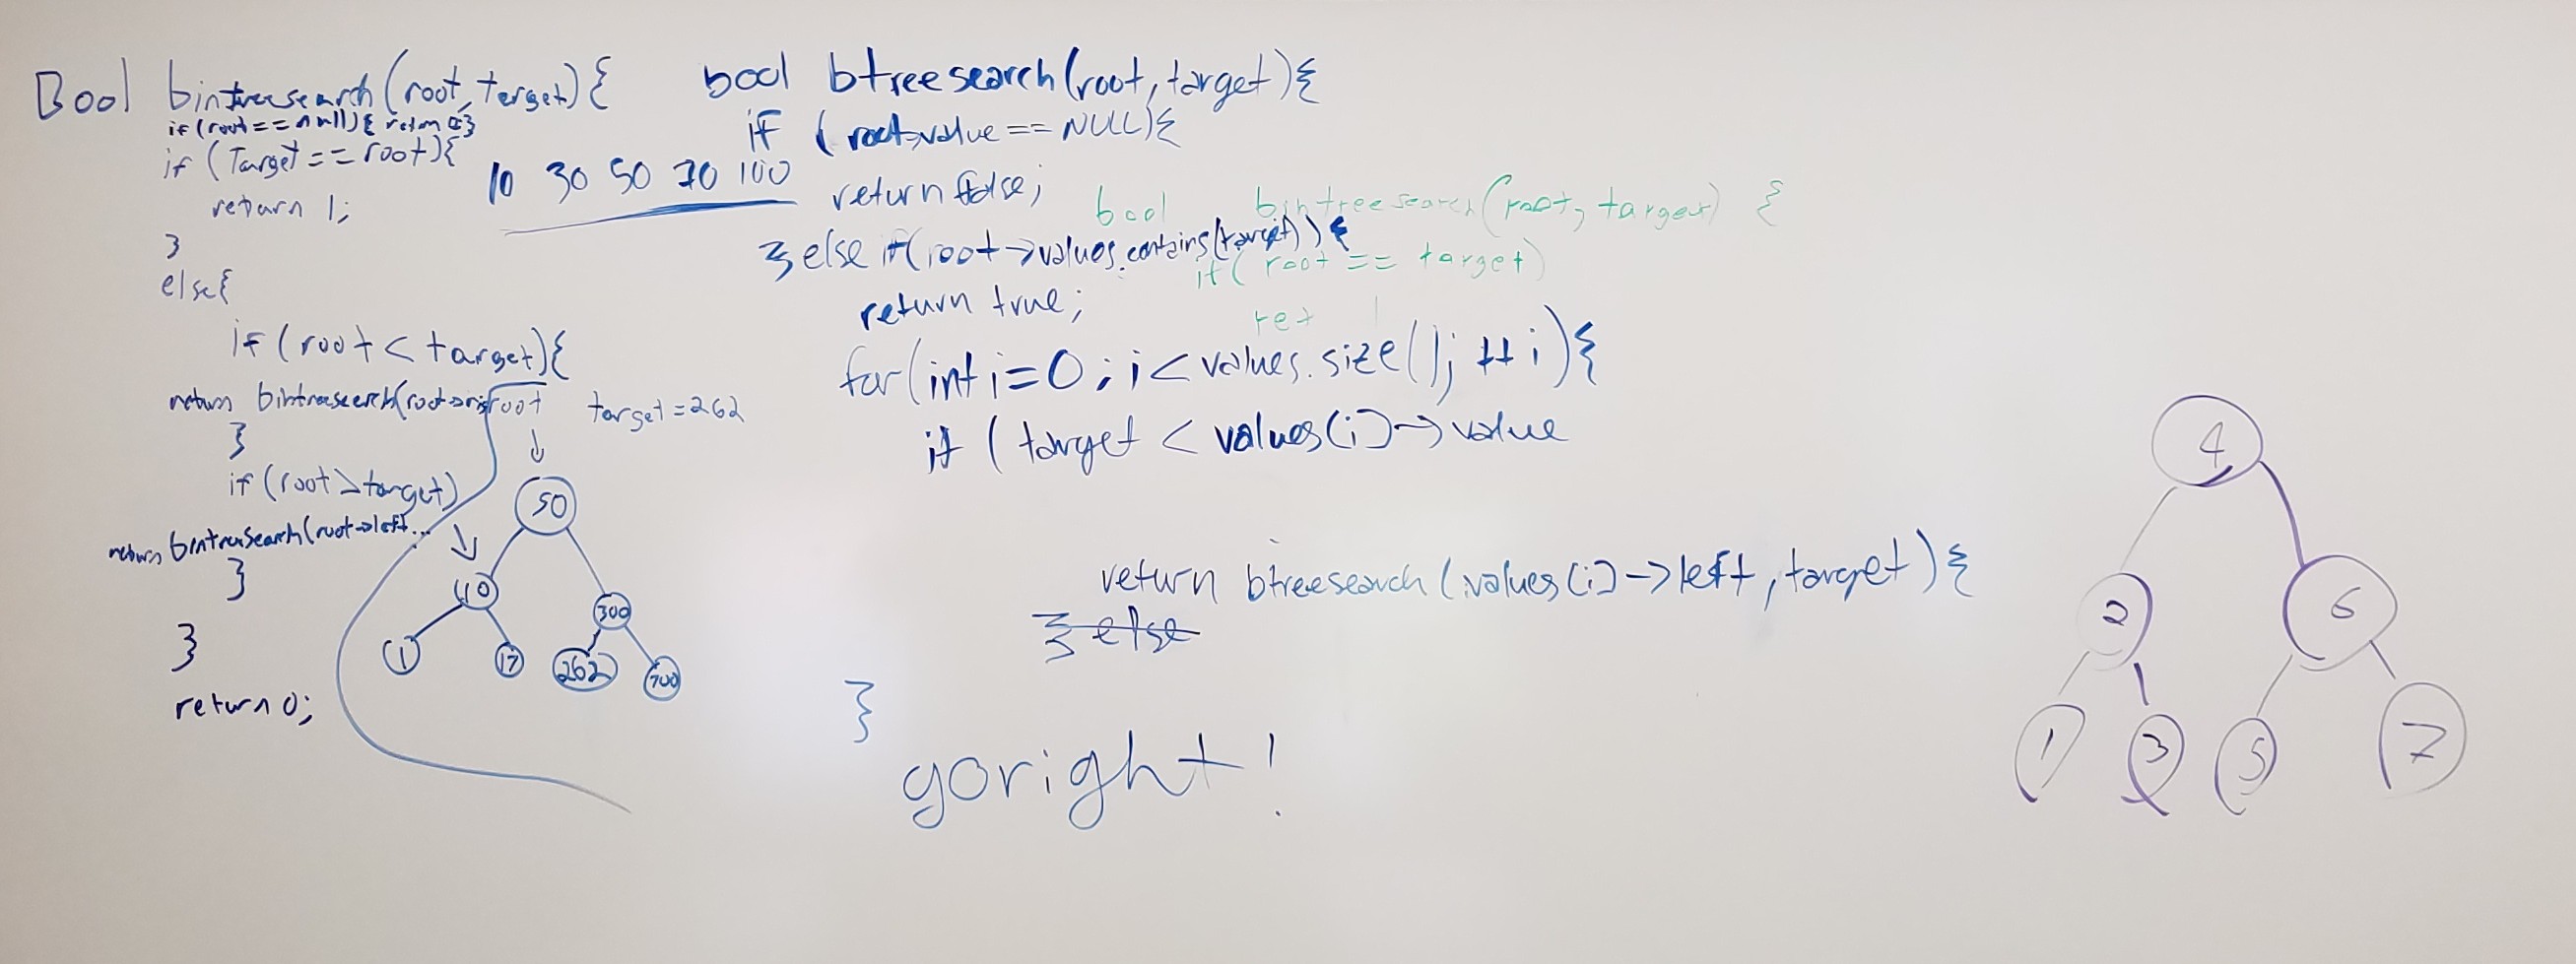 Bool bintreesearch(root, target){
if(root==null){ return 0;}
if (Target==root){
return 1;
}
else{
if (root < target){
return bintreesearch(root->ri
}
if (root>target)
return bintreeSearch(root->left...
}
}
return 0;
10 30 50 70 100
root target=262
50
40
300
1
17
262
700
bool btreesearch(root, target){
if (root->value == NULL){
return false;
} else if(root->values.contains(target)){
return true;
for(int i=0; i<values.size(); ++i){
if (target < values(i)->value
return btreesearch(values(i)->left, target){
} else
}
goright!
bool bintreesearch(root, target) {
if( root == target)
ret 1
4
2 6
1 3 5 7